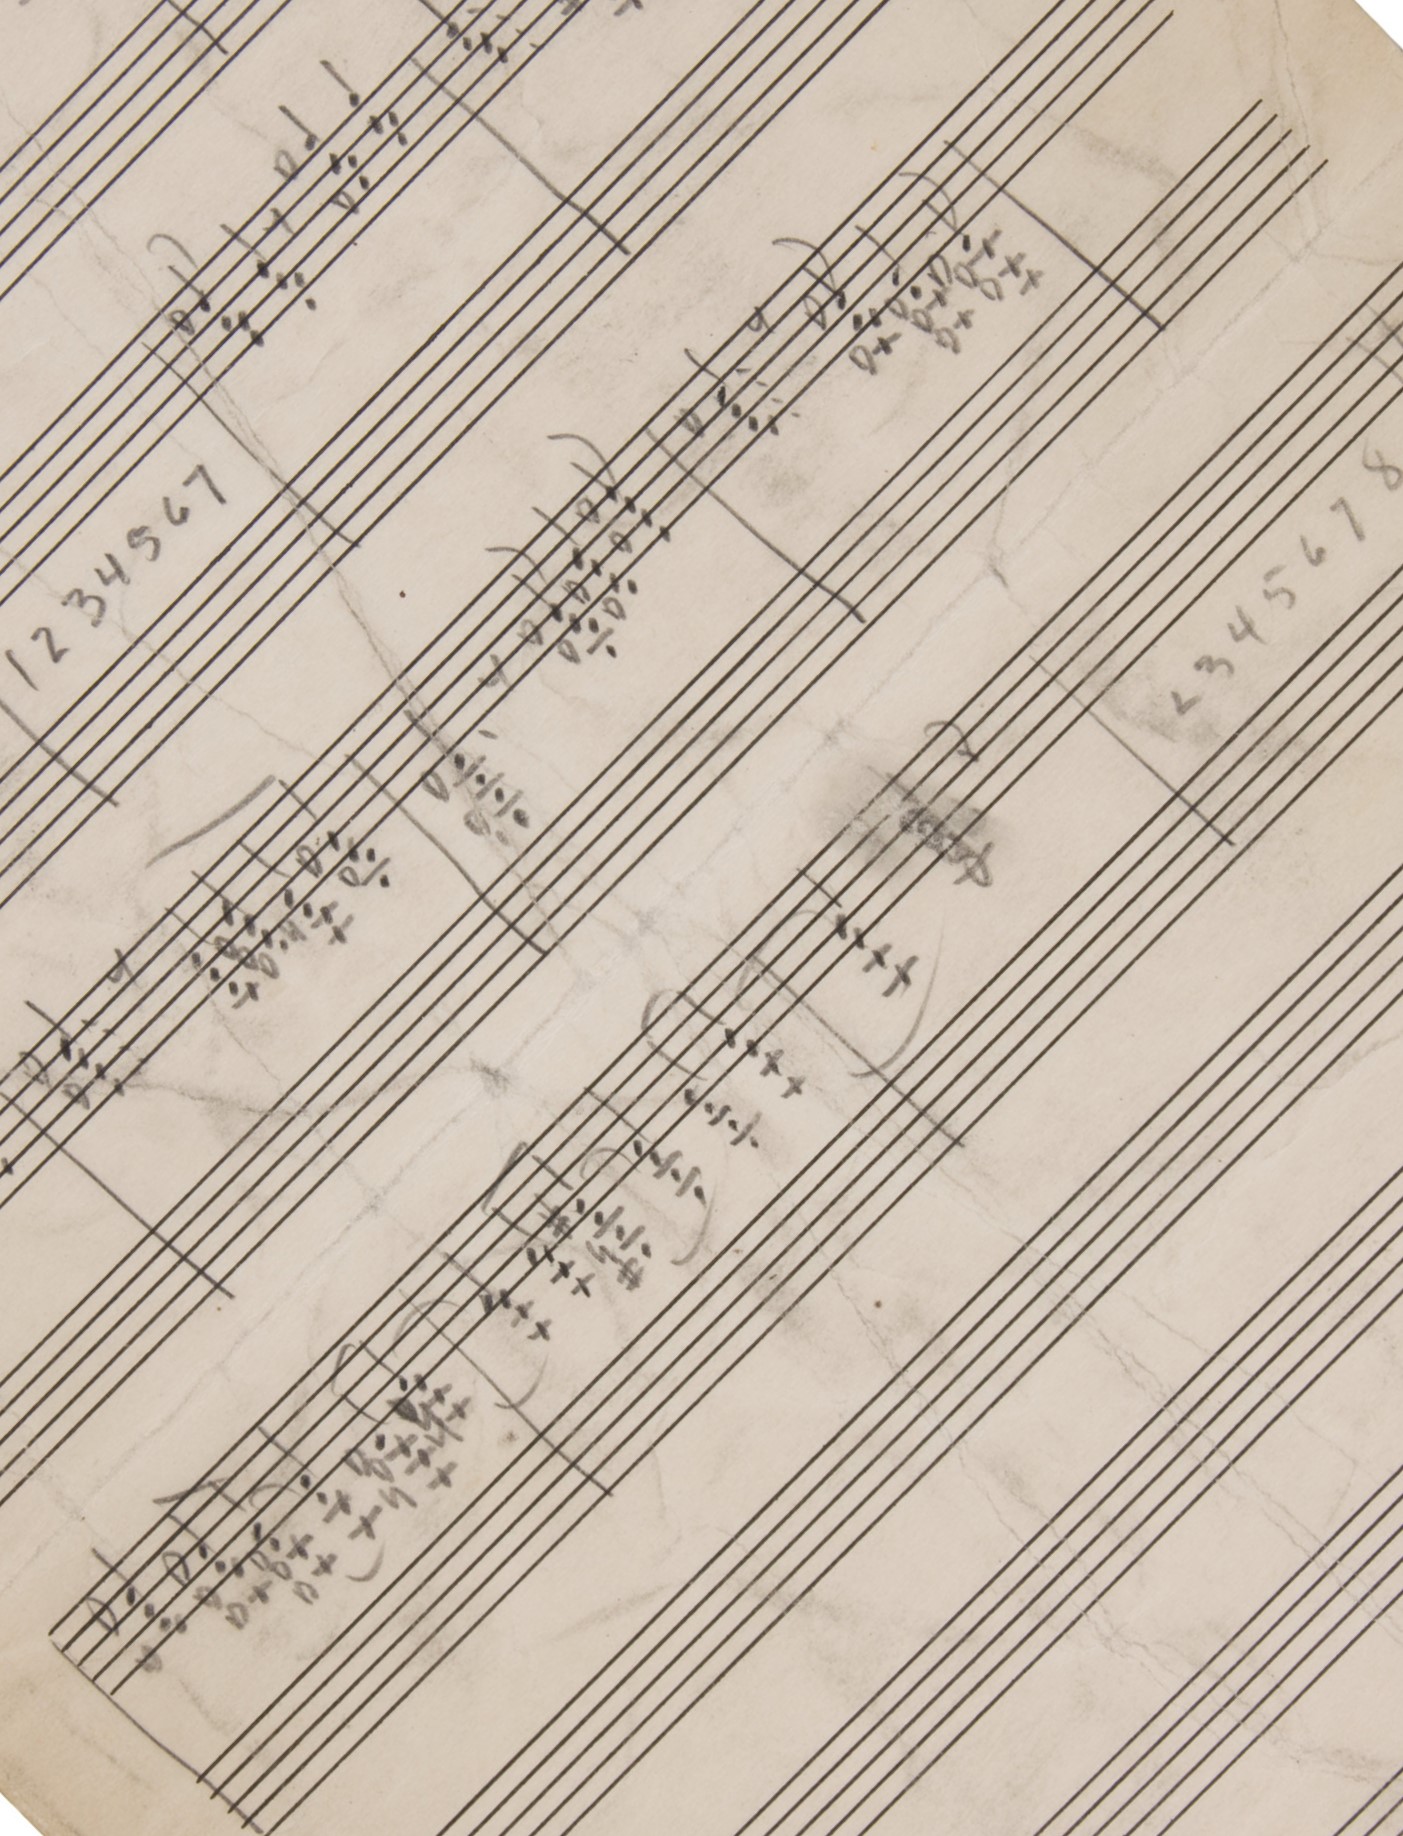 1 2 3 4 5 6 7
2 3 4 5 6 7 8